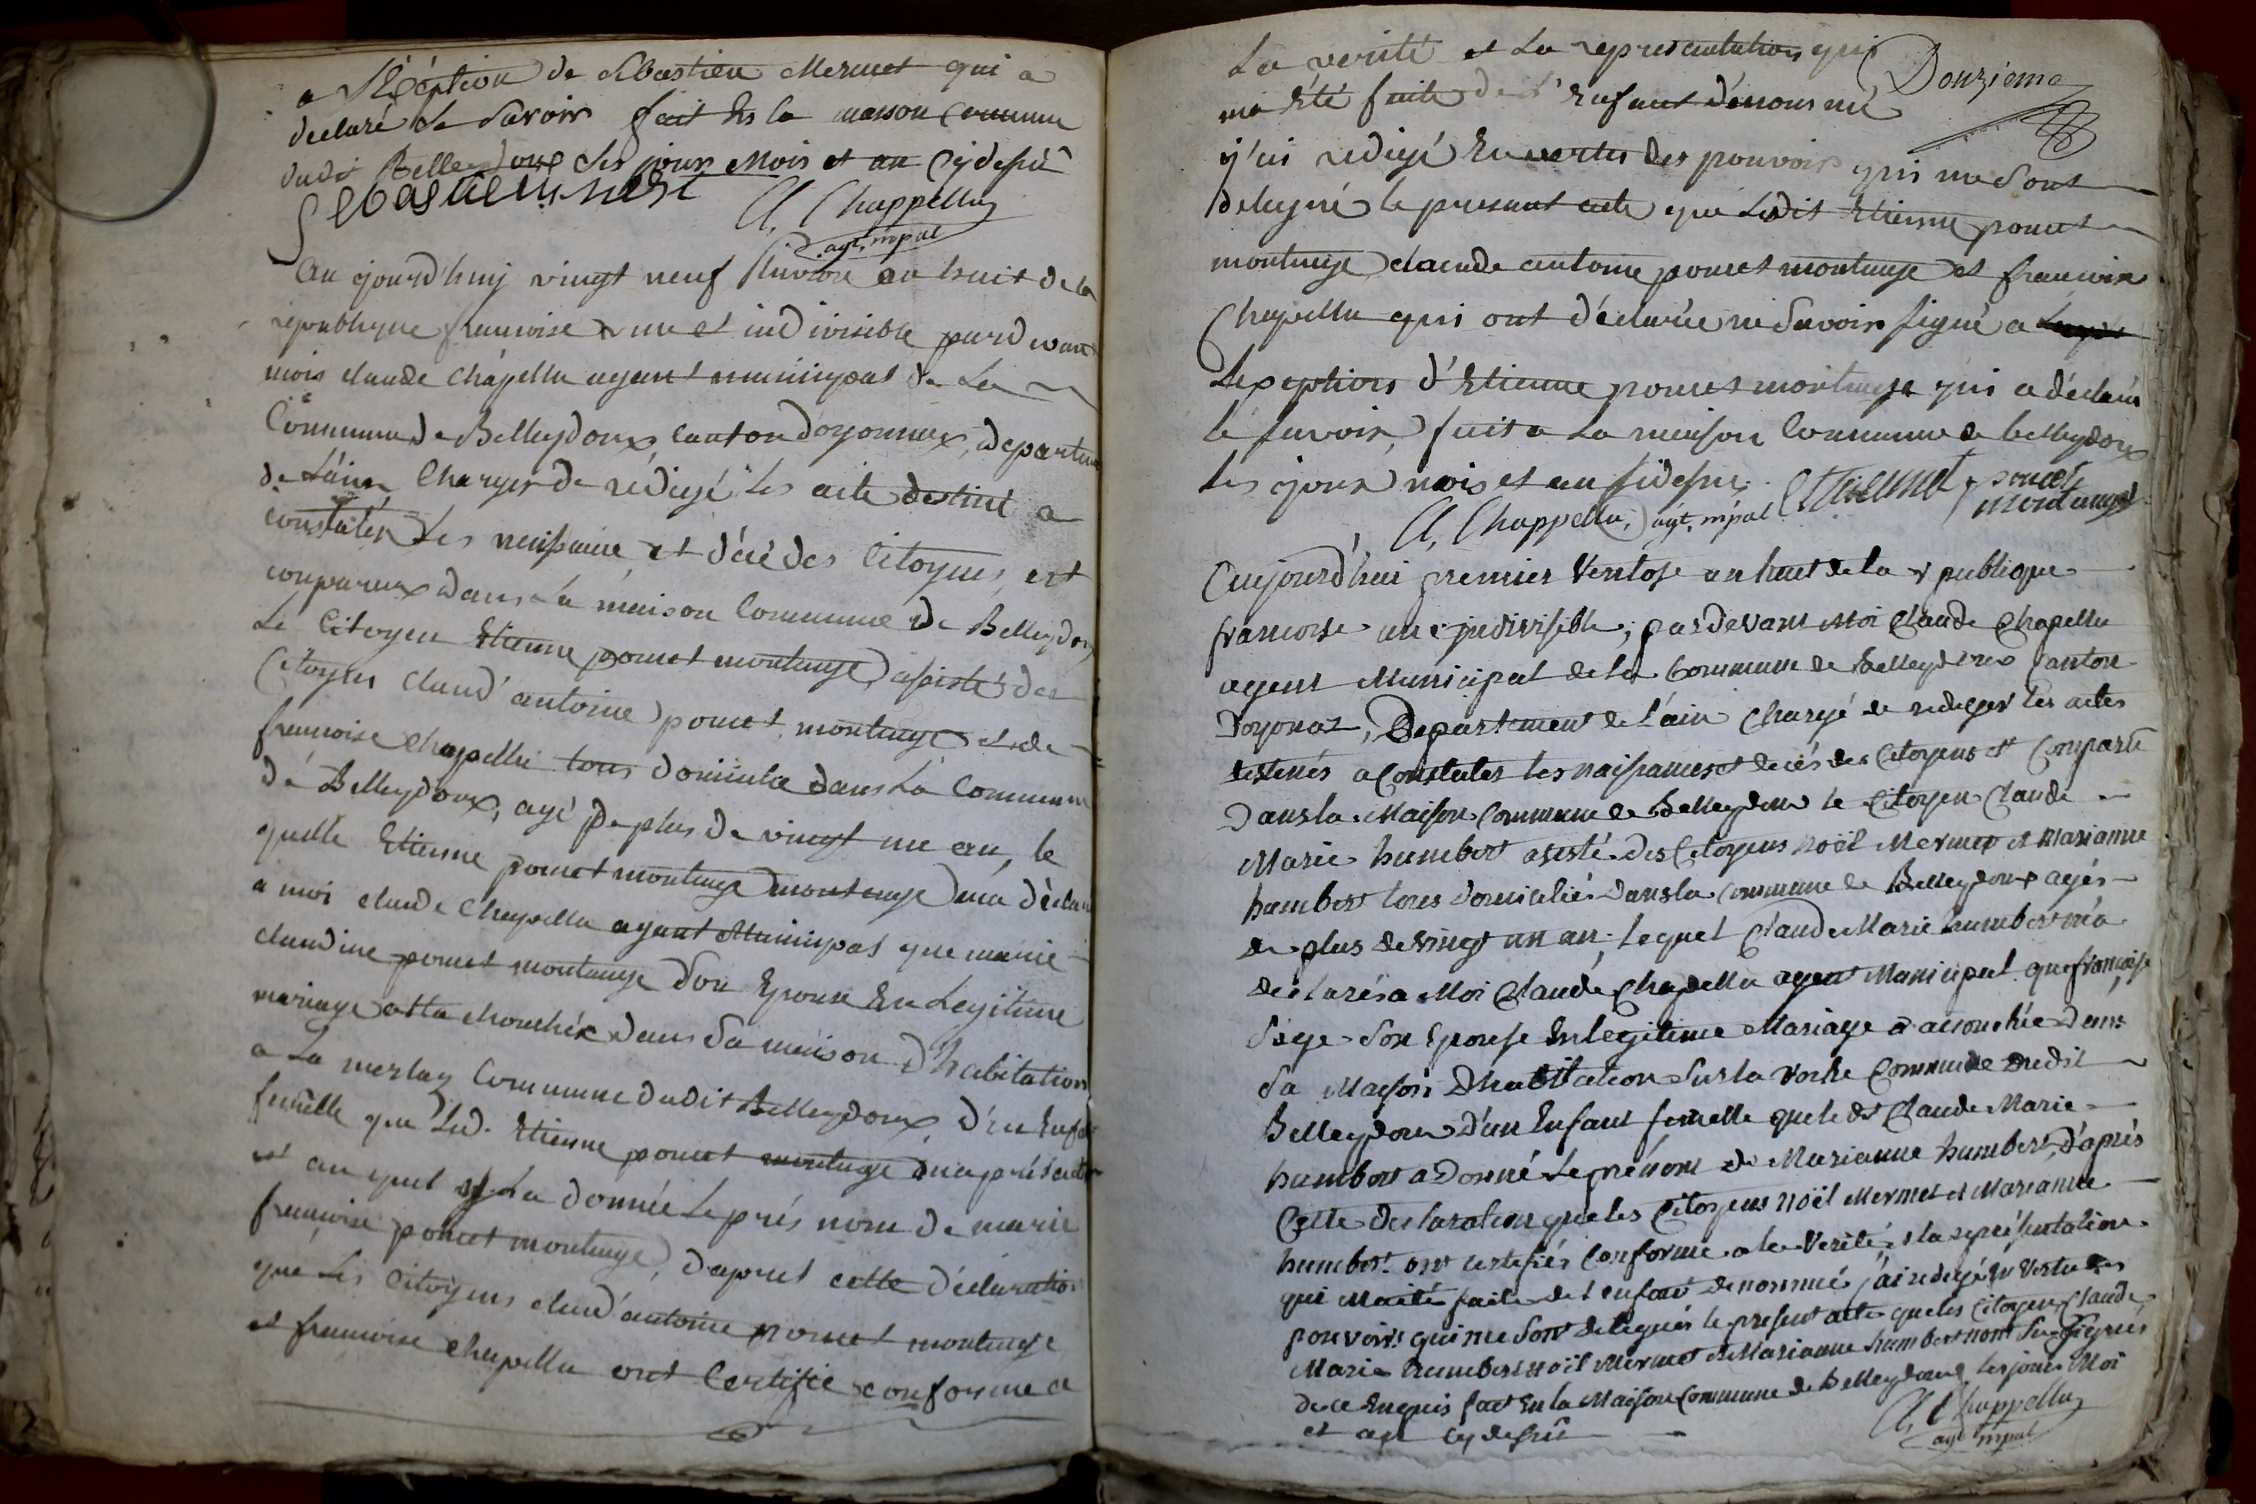 a L'Exéption de Sébastien Mermet qui a
declaré Le Savoir fait En la maison Commune
dudit Belleydoux Les jours Mois et an Cÿdessû
Sebastien
Cl, Chappellu
agt, mpal
Au ojourd'huij vingt neuf Pluviôse an huit de la
republique francoise une et indivisible pardevant
mois claude Chapellu agent municipal de La
Commune de Belleydoux, Canton doyonnax, departem
de Láin Charger de redigé Les acte destiné a
constatér Les naissance et décé des Citoyens est
comparux dans La maison Commune de Belleydoux
Le Citoyen Etienne poncet montange, assisté des
Citoyens claud'antoine poncet montange et de
francoise Chapellu tous domicilie dans La Commune
de Belleydoux, agé de plus de vingt une an, le
quelle Etienne poncet montange montange ma déclaré
a moi claude Chapellu agent Municipal que marie
claudine poncet montange son Epouse En Legitime
mariage atta chouchée dans Sa maison d'habitation
a La merlaz Commune dudit Belleydoux, d'un Enfant
femelle que Led. Etienne poncet montange ma présenter
et au quel il La donnée Le prés nom de marie
francoise poncet montange, dapret cette déclaration
que Les Citoyens claud'antoine poncet montange
et francoise Chapellu ont Certifié conforme a
La verité et La representation qui
ma Eté faite de L'Enfant dénommé
Donzieme
j'ai redigé En vertu des pouvoir qui me Sont
delegué le present acte que Ledit Etienne poncet
montange claude antoine poncet montange et francoise
Chapellu qui ont déclarée ne Savoir signé a
Lexeption d'Etienne poncet montange qui a déclaré
le Savoir, fait a La maison Commune de belleydoux
Les jour mois et an sidesus
Cl, Chappellu, agt, mpal
Etienne poncet
montange
Aujourd'hui premier Ventose an huit de la republique
francoise une indivisible, pardevant Moi Claude Chapellu
agent Municipal de la Commune de Belleydoux Canton
Doyonaz, Departement de l'ain Chargé de rediger les actes
destinés a Constater les naissances et decés des Citoyens et Comparû
Dans la Maison Commune de Belleydoux le Citoyen Claude
Marie humbert assisté des Citoyens Noël Mermet et Marianne
humbert tous domiciliés dans la Commune de Belleydoux agés
de plus de vingt un an, lequel Claude Marie humbert m'a
declaré a Moi Claude Chapellu agent Municipal que françoise
Sage Son Epouse En legitime Mariage a accouchée dans
Sa Maison D'habitation Sur la Roche Commune dudit
Belleydoux D'un Enfant femelle que le dt Claude Marie
humbert a Donné Le prénom de Marianne humbert, D'aprés
Cette declaration que les Citoyens Noël Mermet et Marianne
humbert ont certifiés Conforme a la Verité, et la représentation
qui M'a été faite de l'enfant denommé j'ai redigé En vertu des
pouvoirs qui me Sont delegués le present acte que les Citoyens Claude
Marie humbert Noël Mermet et Marianne humbert n'ont Su Signer
de ce Enquis fait En la Maison Commune de Belleydoux les jour Moi
et an Cy dessû
Cl, Chappellu
agt mpal